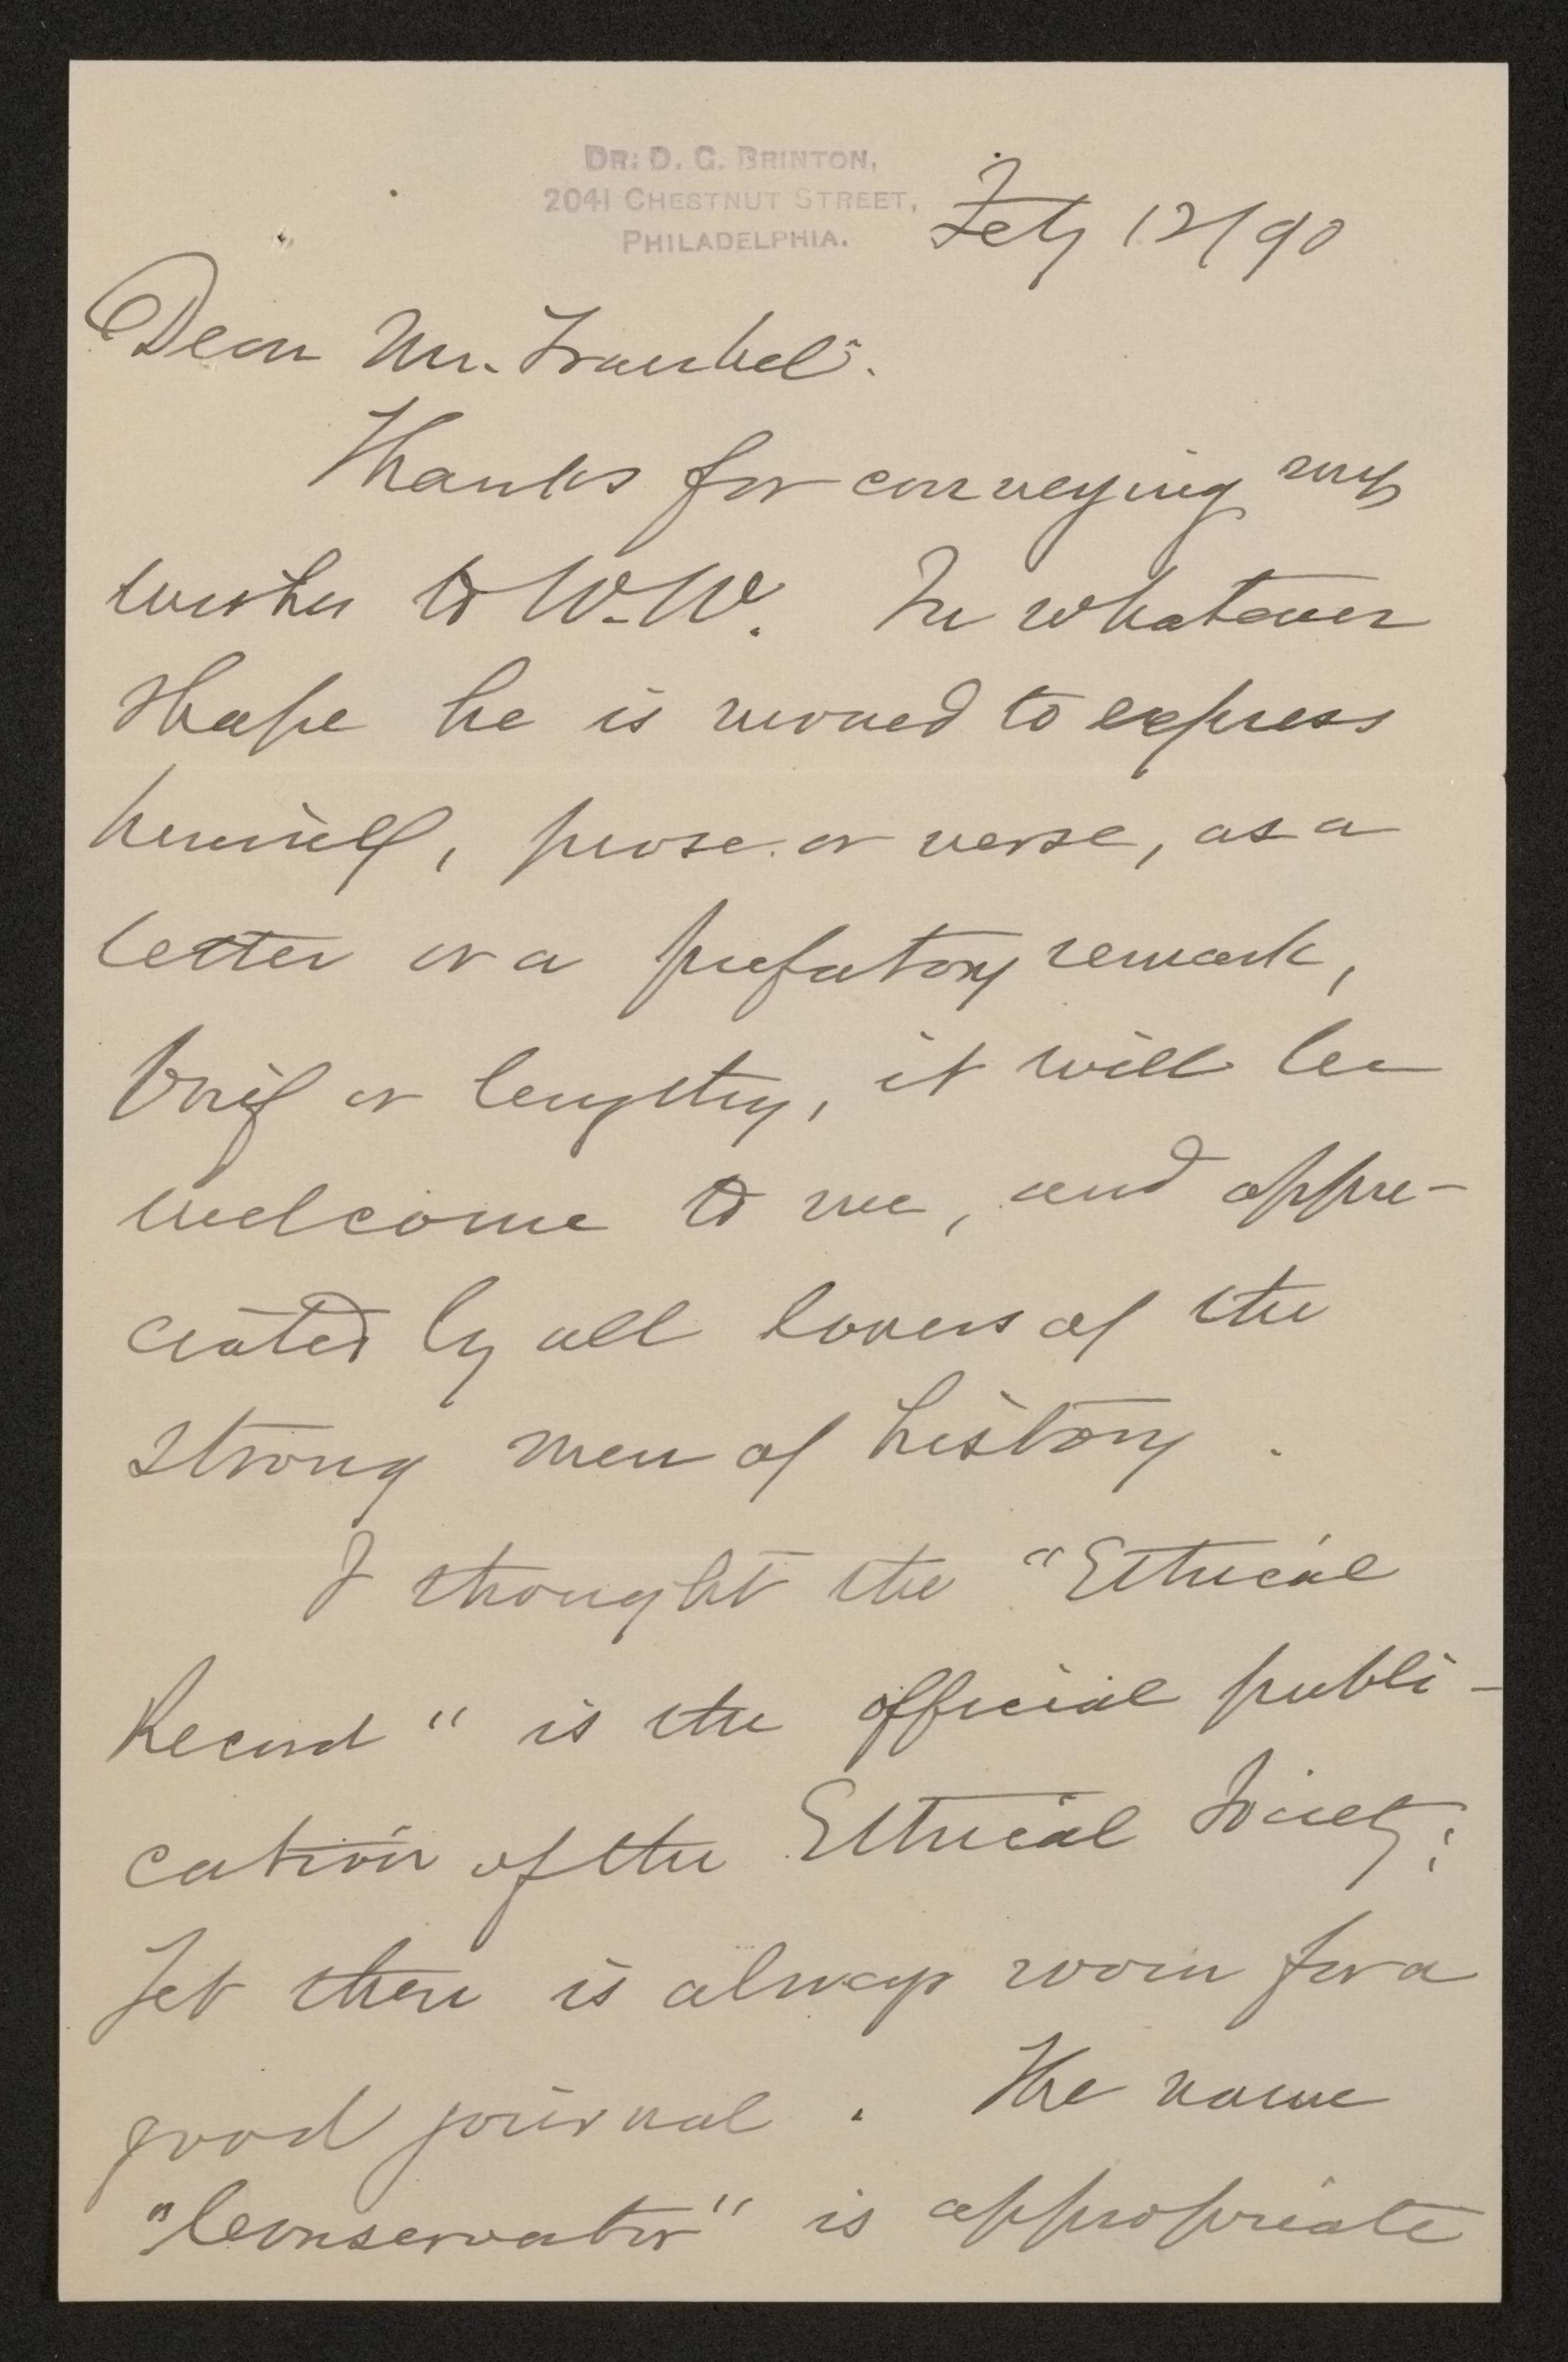 DR. D. G. BRINTON,
2041 CHESTNUT STREET,
PHILADELPHIA.
Feby 12/90
Dear Mr. Traubel:
Thanks for conveying my
wishes to W. W. In whatever
shape he is moved to express
himself, prose or verse, as a
letter or a prefatory remark,
brief or lengthy, it will be
welcome to me, and appre-
ciated by all lovers of the
strong men of history.
I thought the "Ethical
Record" is the official publi-
cation of the Ethical Society;
Yet there is always room for a
good journal. The name
"Conservator" is appropriate